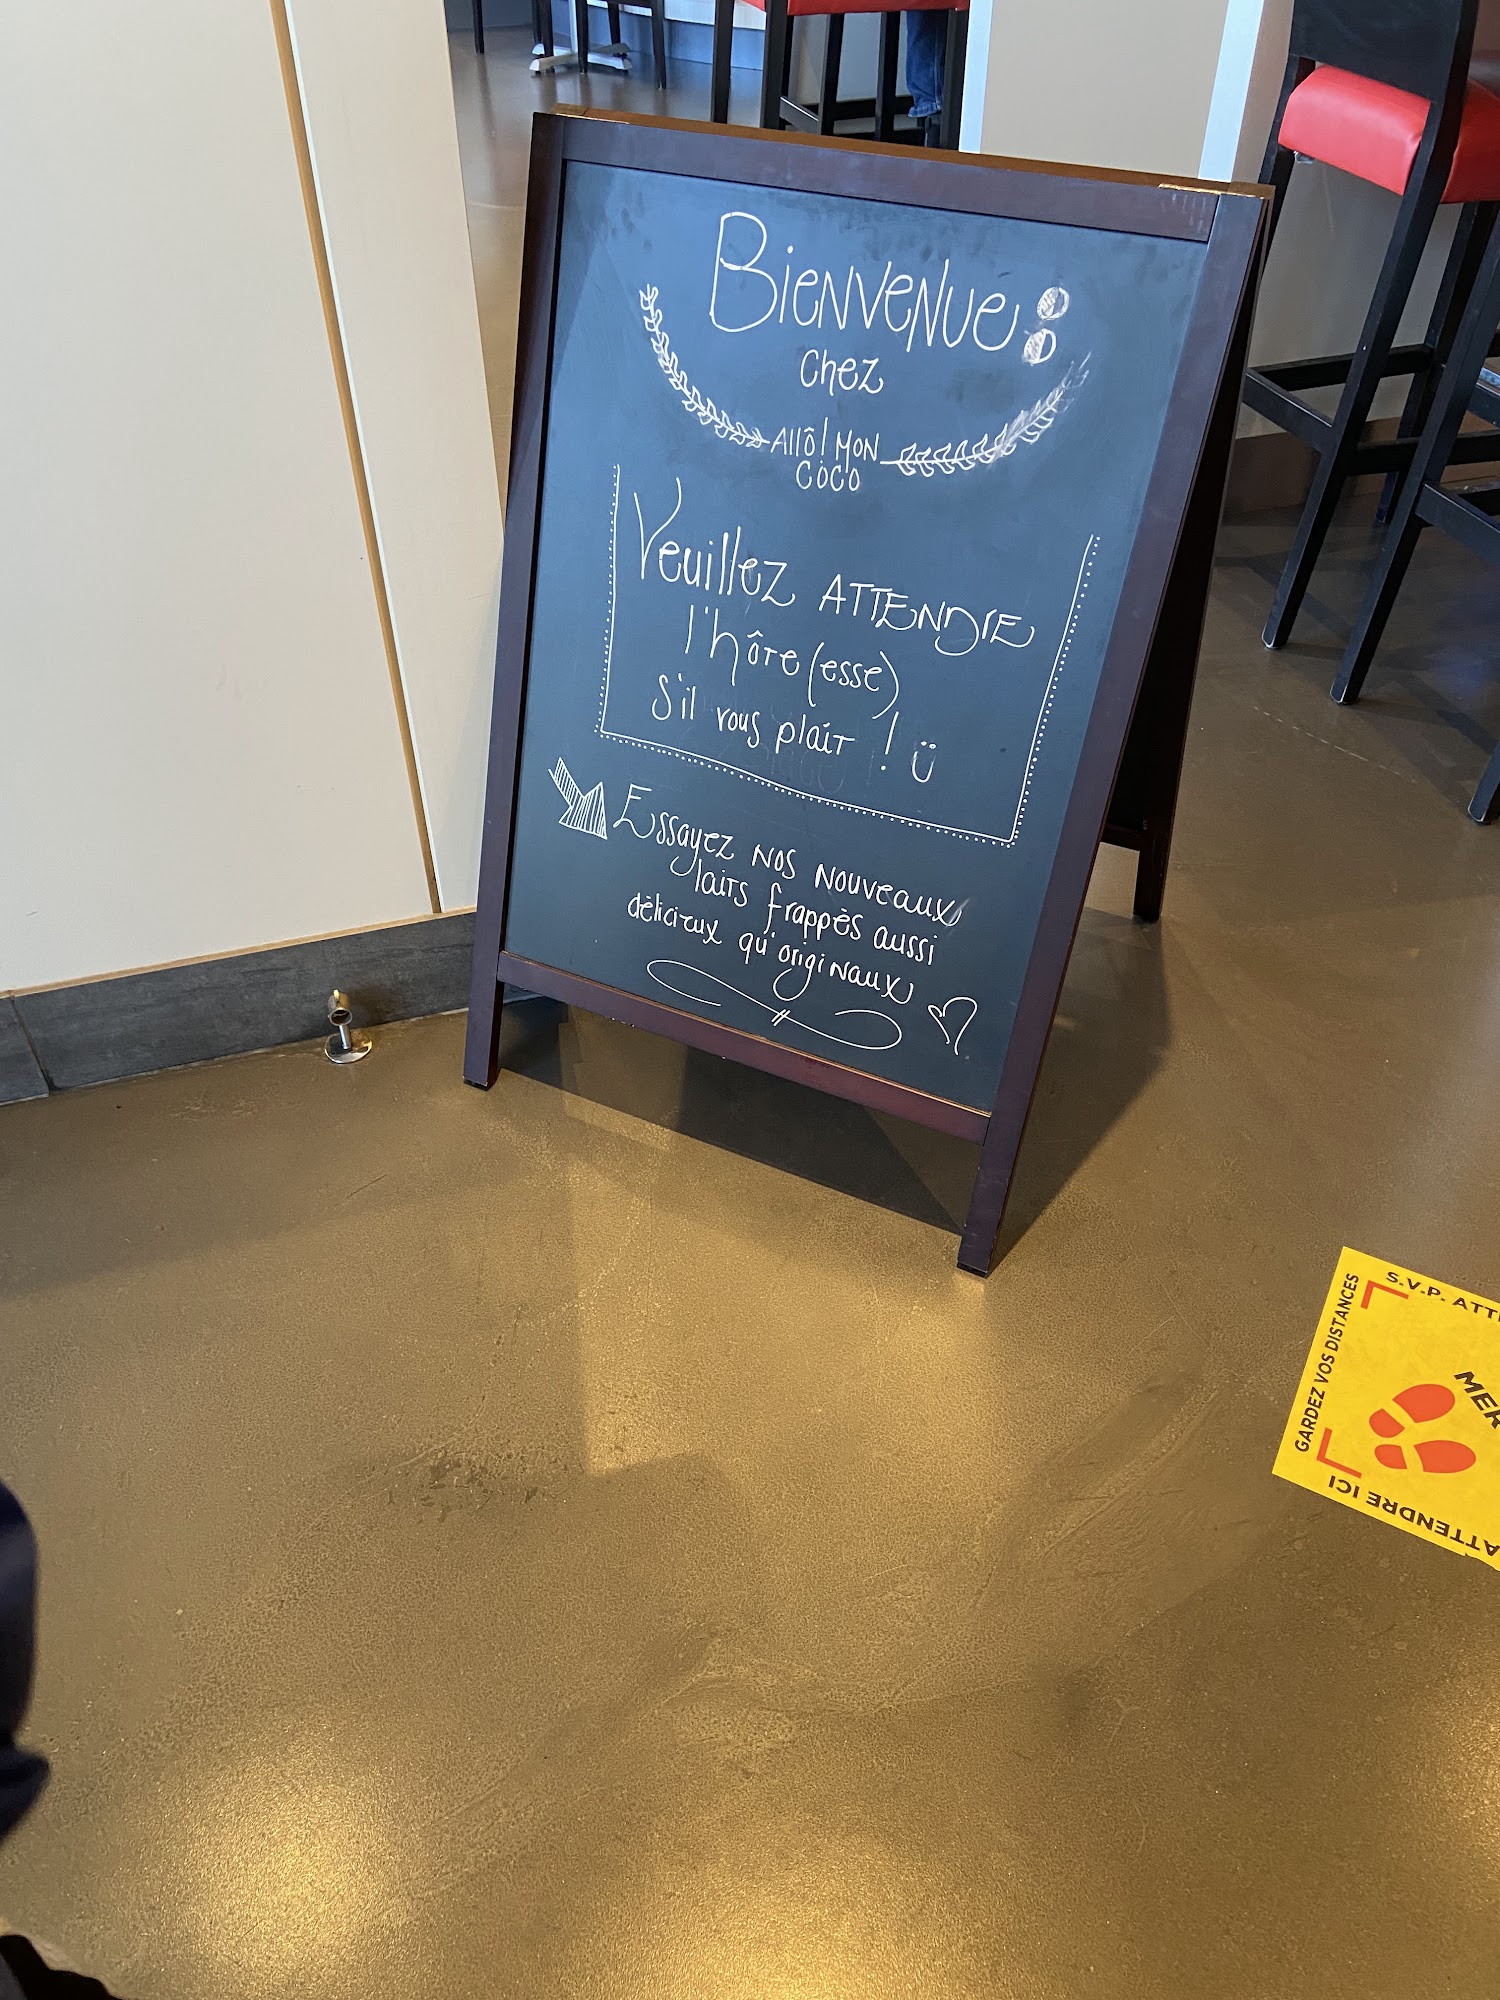 Bienvenue
chez
Allô! Mon
Coco
Veuillez attendre
l'hôte(esse)
s'il vous plaît !
Essayez nos nouveaux
laits frappés aussi
délicieux qu'originaux
S.V.P.
GARDEZ VOS DISTANCES
ATTENDRE ICI